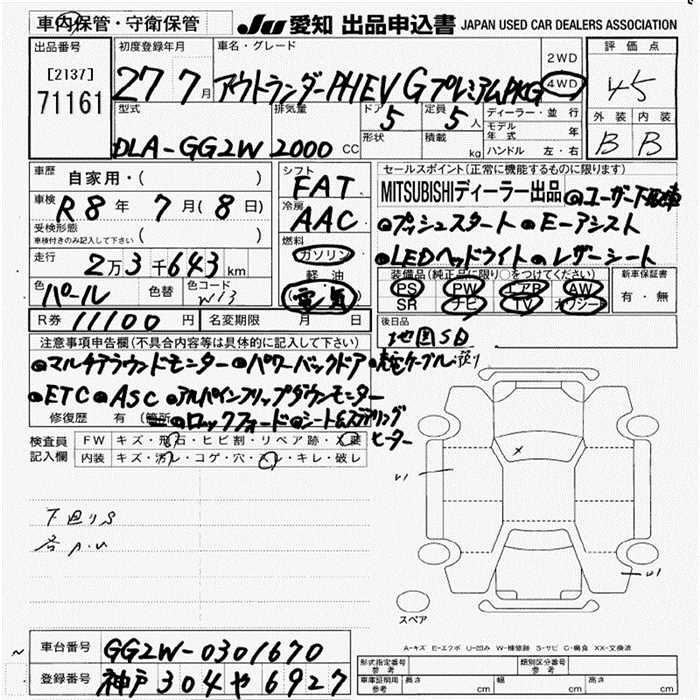 車内保管・守衛保管
JU 愛知 出品申込書 JAPAN USED CAR DEALERS ASSOCIATION
出品番号
[2137]
71161
初度登録年月
27 7月
車名・グレード
アウトランダーPHEV GプレミアムPKG
2WD
4WD
評価点
4.5
外装 内装
B B
型式
DLA-GG2W
排気量
2000 CC
ドア
5
定員
5人
形状
積載
kg
ディーラー・並行
モデル年式 年
ハンドル 左・右
車歴
自家用・( )
車検
R8年 7月(8日)
受検形態
車検付きのみ記入して下さい ( )
走行
2万3千643km
色
パール
色替
色コード
W13
シフト
FAT
冷房
AAC
燃料
ガソリン
軽油
(電気)
セールスポイント(正常に機能するものに限ります)
MITSUBISHIディーラー出品 ◎ユーザー下取車
◎プッシュスタート ◎E-アシスト
◎LEDヘッドライト ◎レザーシート
装備品(純正品に限り○をつけてください)
PS PW エアB AW
SR ナビ TV カワシート
新車保証書
有・無
R券 11100円
名変期限 月 日
後日品
地図SD
注意事項申告欄(不具合内容等は具体的に記入して下さい)
◎マルチアラウンドモニター ◎パワーバックドア ◎充電ケーブル
◎ETC ◎ASC ◎アルパインフリップダウンモニター
修復歴 有 (箇所
◎ロックフォード ◎シート&ステアリング
ヒーター
検査員
記入欄
FW キズ・飛石・ヒビ割・リペア跡・交換
内装 キズ・汚レ・コゲ・穴・スレ・キレ・破レ
下回りS
U1
U1
スペア
A-キズ E-エクボ U-凹み W-補修跡 S-サビ C-腐食 XX-交換済
車台番号
GG2W-0301670
登録番号
神戸 304 や 6927
形式指定番号
参考
類別区分番号
参考
車庫証明用
参考
長さ cm
幅 cm
高さ cm